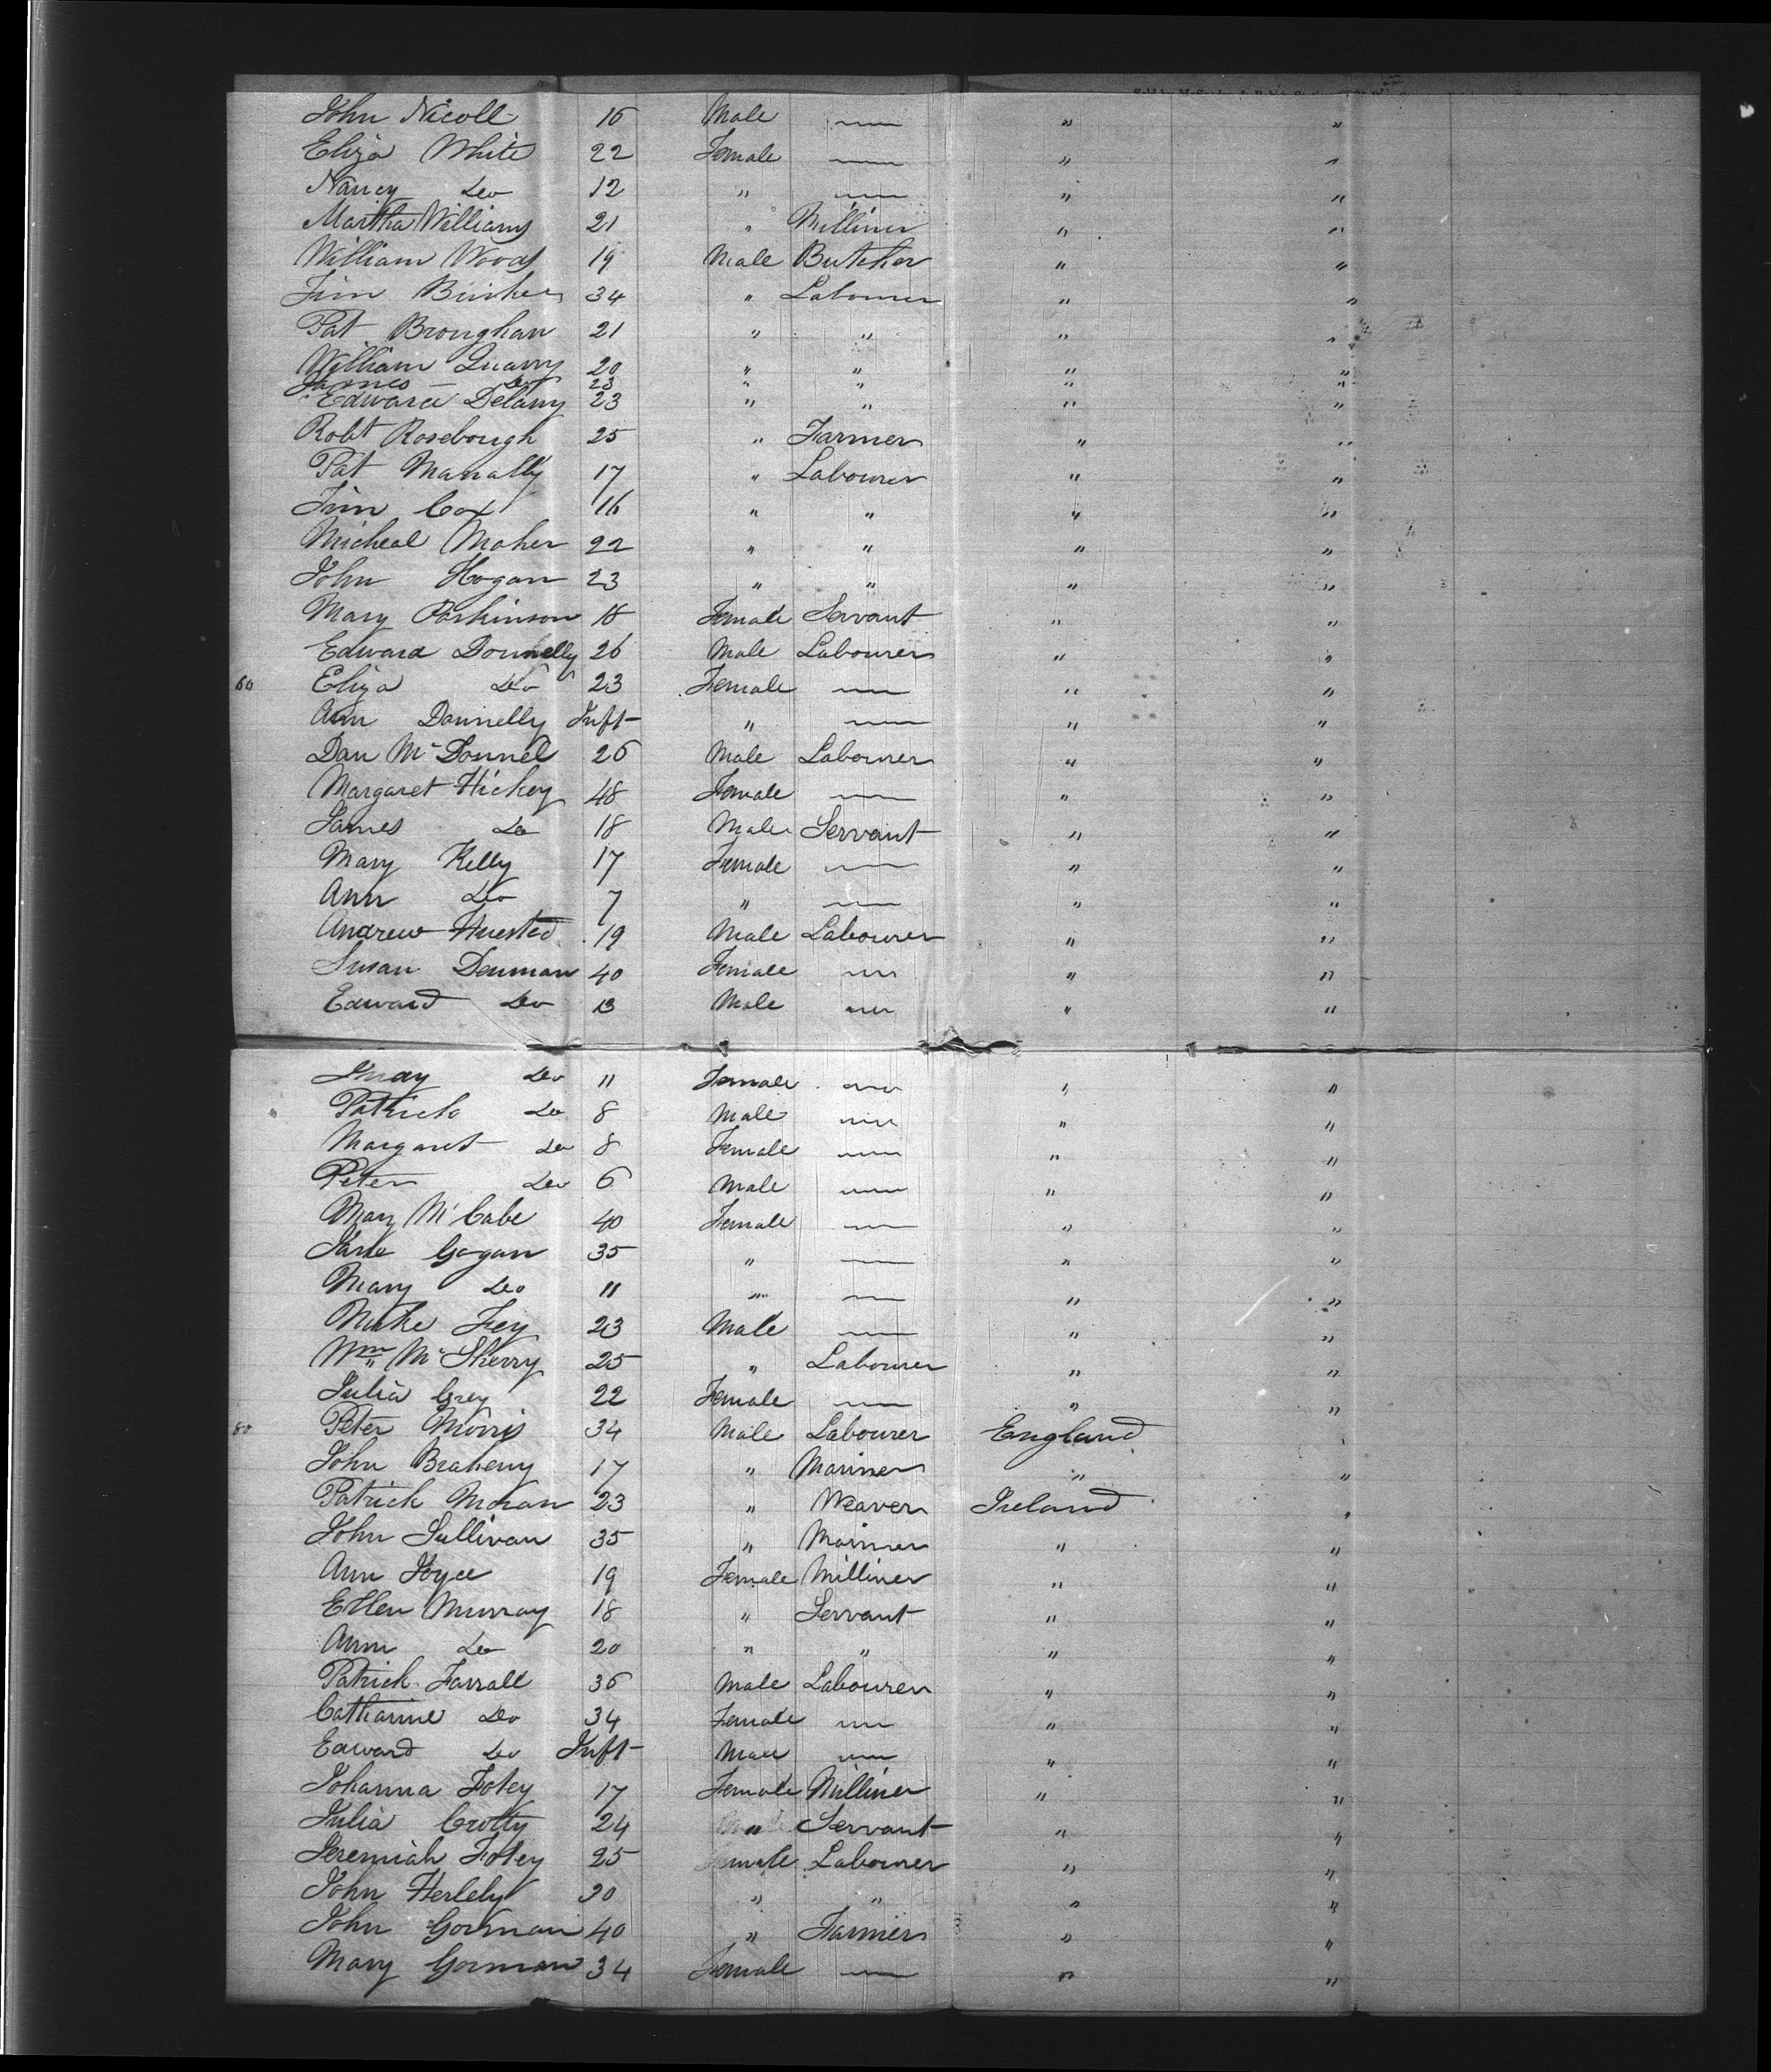 John Nicoll 16 Male " "
Eliza White 22 Female " "
Nancy Do 12 " " "
Martha Williams 21 " Milliner " "
William Woods 19 Male Butcher " "
Jim 34 " Labourer " "
Pat Broughan 21 " " " "
William Quarry 20 " " " "
James — Do 23 " " " "
Edward Delany 23 " " " "
Robt Rosebough 25 " Farmer " "
Pat Manally 17 " Labourer " "
Jim Cox 16 " " " "
Micheal Maher 22 " " " "
John Hogan 23 " " " "
Mary Parkinson 18 Female Servant " "
Edward Donnelly 26 Male Labourer " "
60 Eliza Do 23 Female " "
Ann Donnelly Inft " " "
Dan McDonnel 26 Male Labourer " "
Margaret Hickey 48 Female " "
James Do 18 Male Servant " "
Mary Kelly 17 Female " "
Ann Do 7 " " "
Andrew Huested 19 Male Labourer " "
Susan Denman 40 Female " "
Edward Do 13 Male " "
Do 11 Female " "
Patrick Do 8 Male " "
Margaret Do 8 Female " "
Peter Do 6 Male " "
Mary McCabe 40 Female " "
Jane Gogan 35 " " "
Mary Do 11 " " "
Mike Fey 23 Male " "
Wm McSherry 25 " Labourer " "
Julia Grey 22 Female " "
80 Peter Morris 34 Male Labourer England "
John Braheny 17 " Mariner " "
Patrick Moran 23 " Weaver Ireland "
John Sullivan 35 " Mariner " "
Ann Joyce 19 Female Milliner " "
Ellen Murray 18 " Servant " "
Ann Do 20 " " " "
Patrick Farrall 36 Male Labourer " "
Catharine Do 34 Female " "
Edward Do Inft Male " "
Johanna Foley 17 Female Milliner " "
Julia Crotty 24 " Servant " "
Jeremiah Foley 25 Female Labourer " "
John Herlehy 20 " " " "
John Gorman 40 " Farmer " "
Mary Gorman 34 Female " "